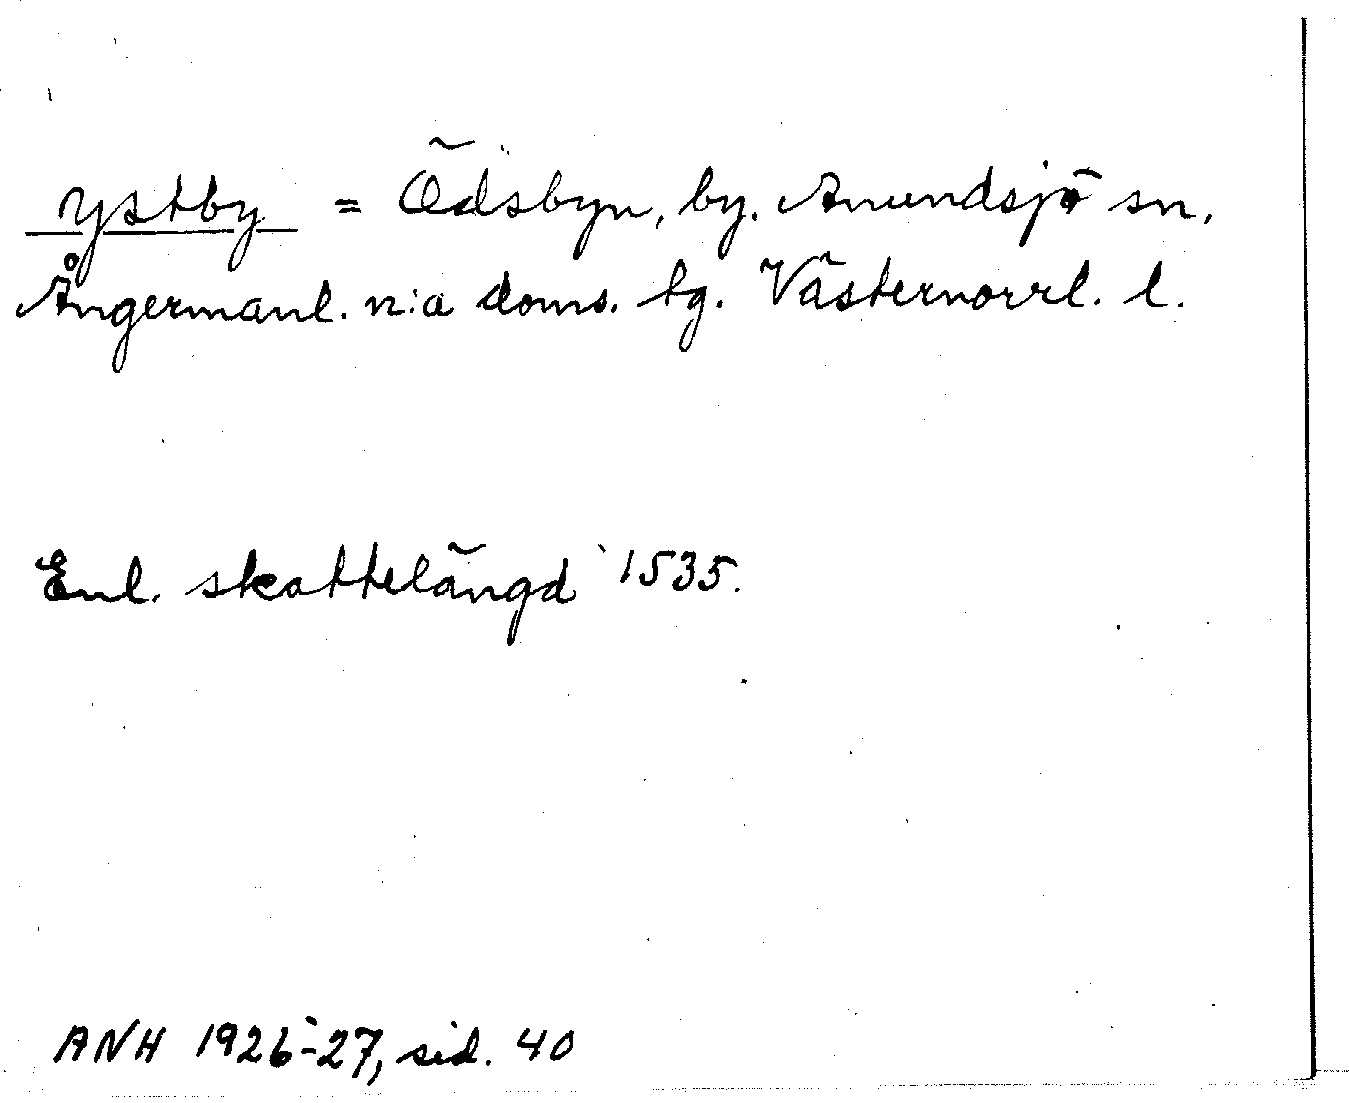 Ystby = Ödsbyn, by. Anundsjö sn,
Ångermanl. n:a doms. tg. Västernorrl. l.
Enl. skattelängd 1535.
ANH 1926-27, sid. 40